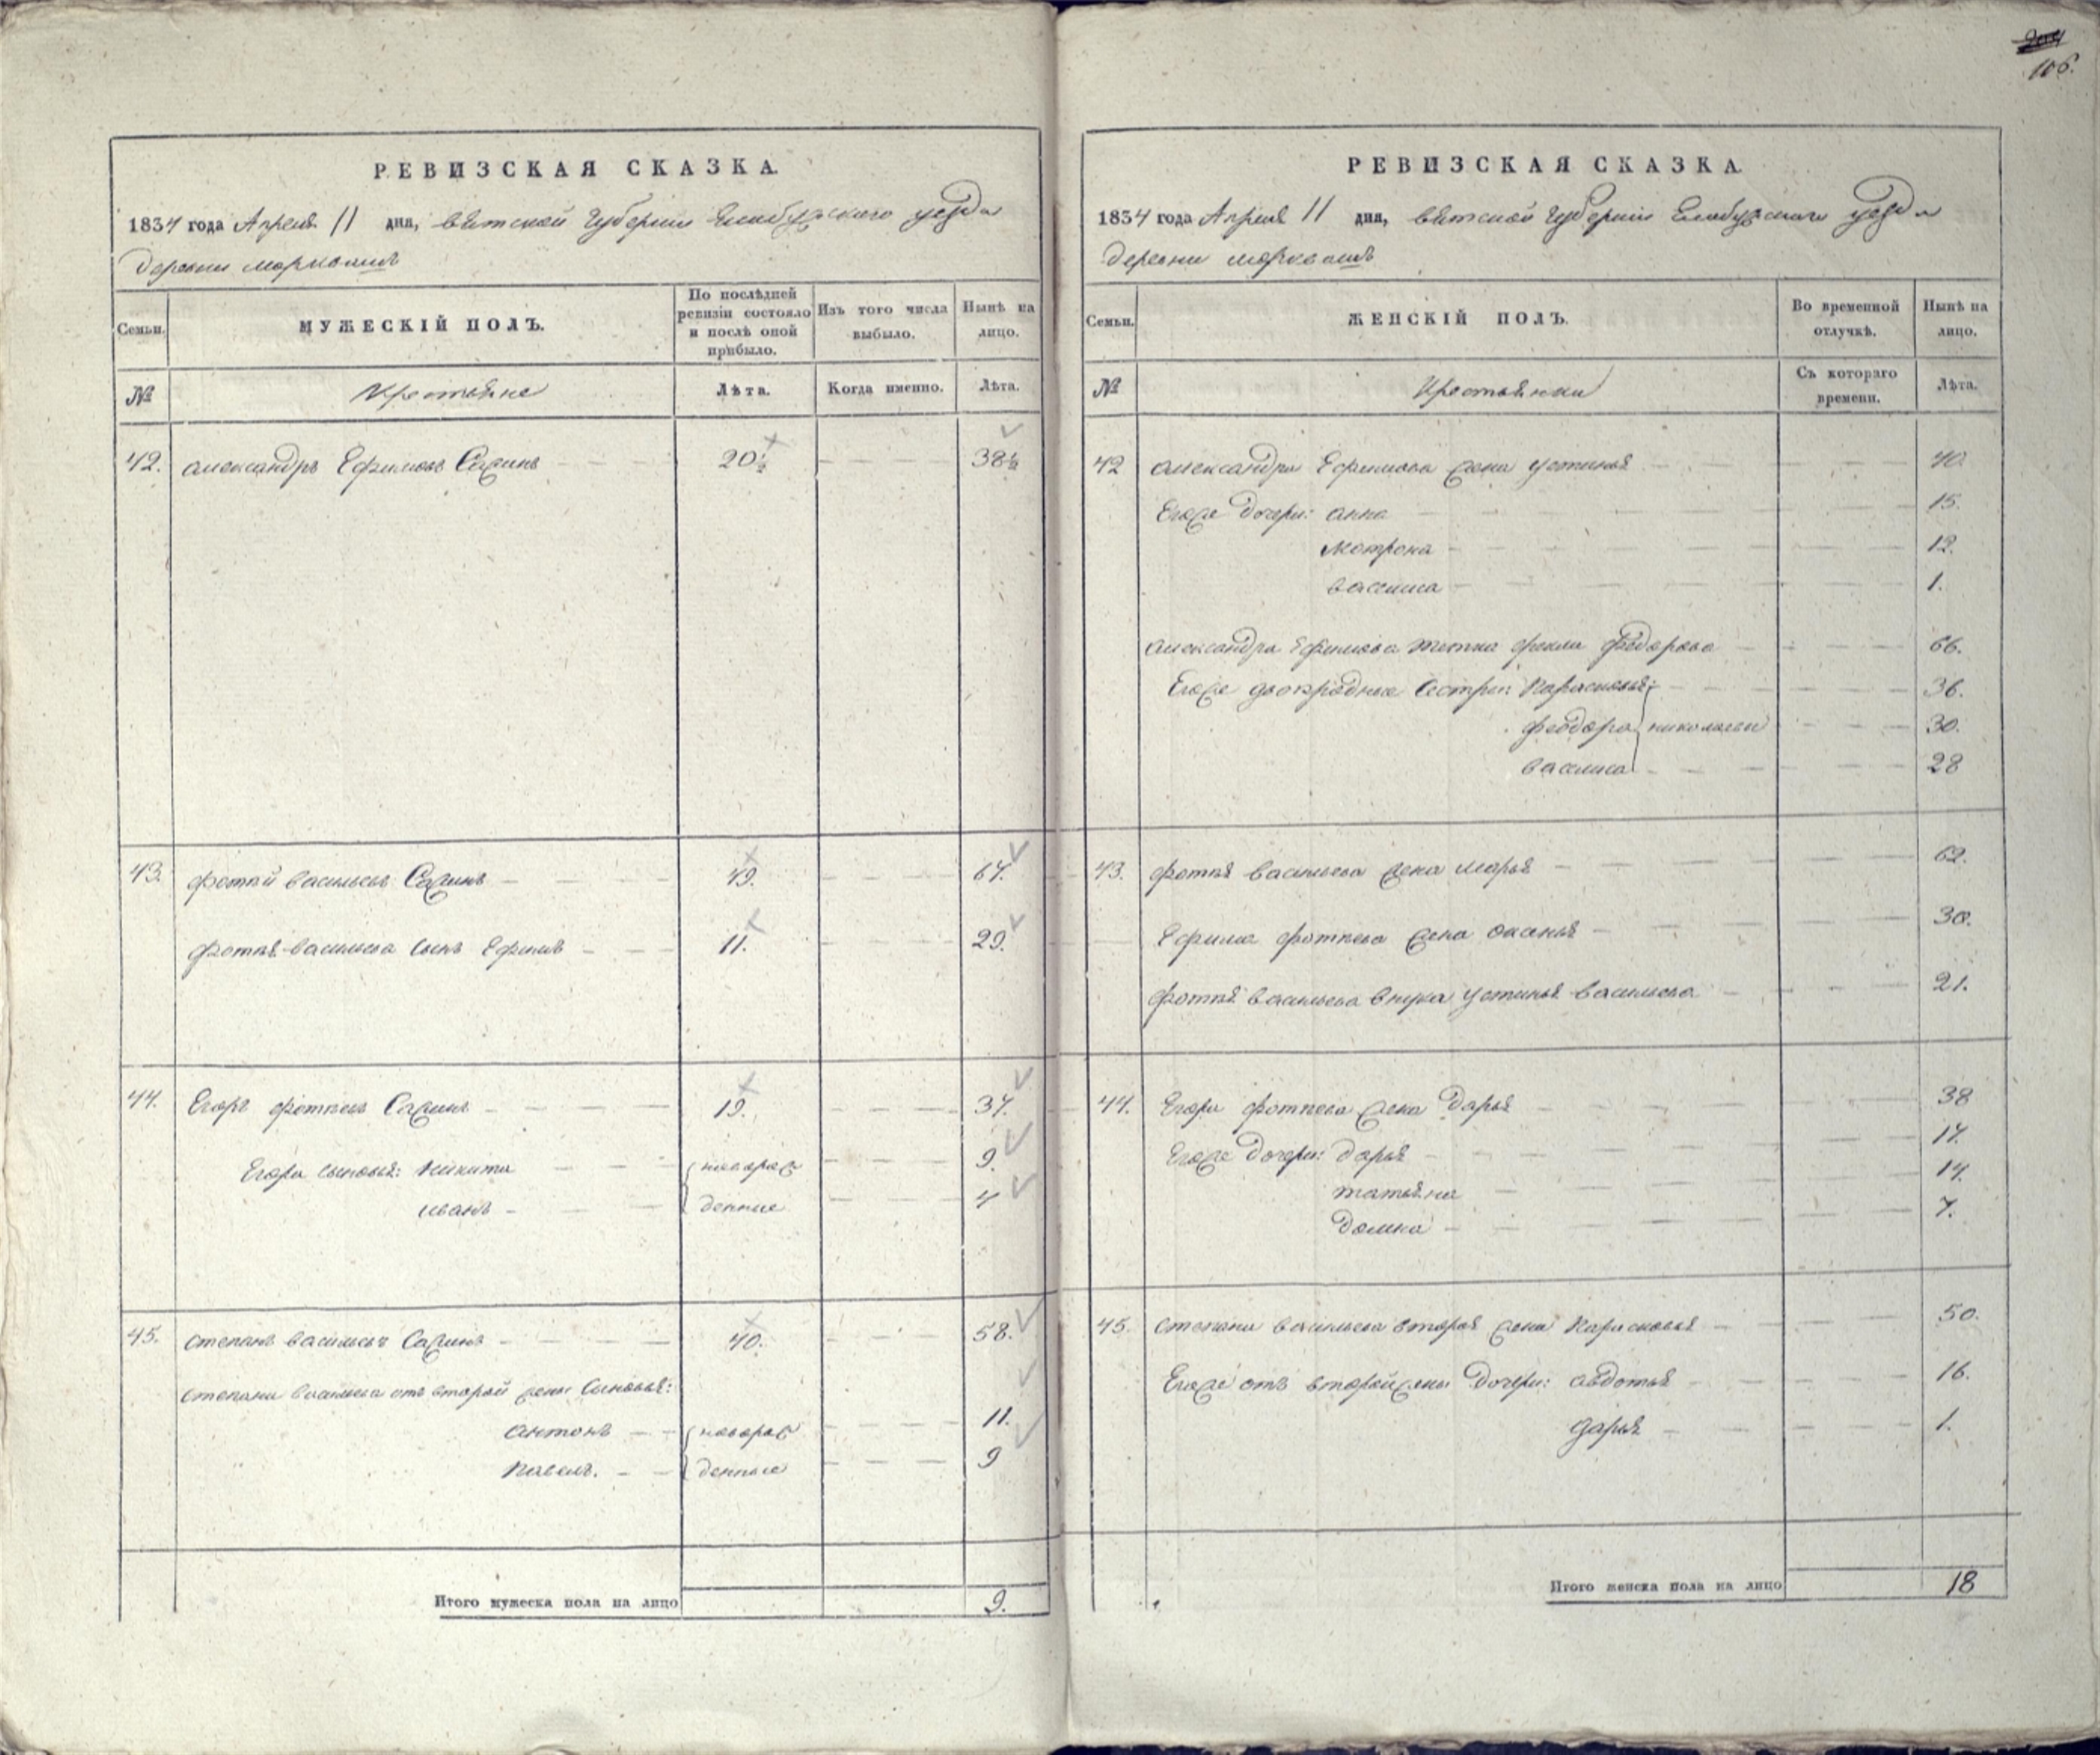 106.
РЕВИЗСКАЯ СКАЗКА.
1834 года Апреля 11 дня, вятской губернии Елабужскаго уезда
деревни морквашъ
Семьи.
МУЖЕСКІЙ ПОЛЪ.
По послѣдней ревизіи состояло и послѣ оной прибыло.
Изъ того числа выбыло.
Нынѣ на лицо.
№
Крестьяне
Лѣта.
Когда именно.
Лѣта.
42. александръ Ефимовъ Сажинъ 20½ 38½
43. фотѣй васильевъ Сажинъ 49. 67.
фотѣя васильева сынъ Ефимъ 11. 29.
44. Егоръ фотѣевъ Сажинъ 19. 37.
Егора сыновья: никита новорож 9.
иванъ денные 4
45. степанъ васильевъ Сажинъ 40. 58.
степана васильева отъ второй жены сыновья:
антонъ новорож 11.
павелъ. денные 9
Итого мужеска пола на лицо 9.
РЕВИЗСКАЯ СКАЗКА.
1834 года Апреля 11 дня, вятской губерніи Елабужскаго уезда
деревни морквашъ
Семьи.
ЖЕНСКІЙ ПОЛЪ.
Во временной отлучкѣ.
Нынѣ на лицо.
№
Крестьянки
Съ котораго времени.
Лѣта.
42 александра Ефимова жена устинья 40.
Егоже дочери: анна 15.
матрона 12.
василиса 1.
александра Ефимова тетка фекла федорова 66.
Егоже двоюродные сестры: парасковья 36.
феодора николаевы 30.
василиса 28
43. фотѣя васильева жена марья 62.
Ефима фотѣева жена оксинья 30.
фотѣя васильева внука устинья васильева 21.
44. Егора фотѣева жена дарья 38
Егоже дочери: дарья 17.
татьяна 14.
домна 7.
45. степана васильева вторая жена парасковья 50.
Егоже отъ второй жены дочери: авдотья 16.
дарья 1.
Итого женска пола на лицо 18